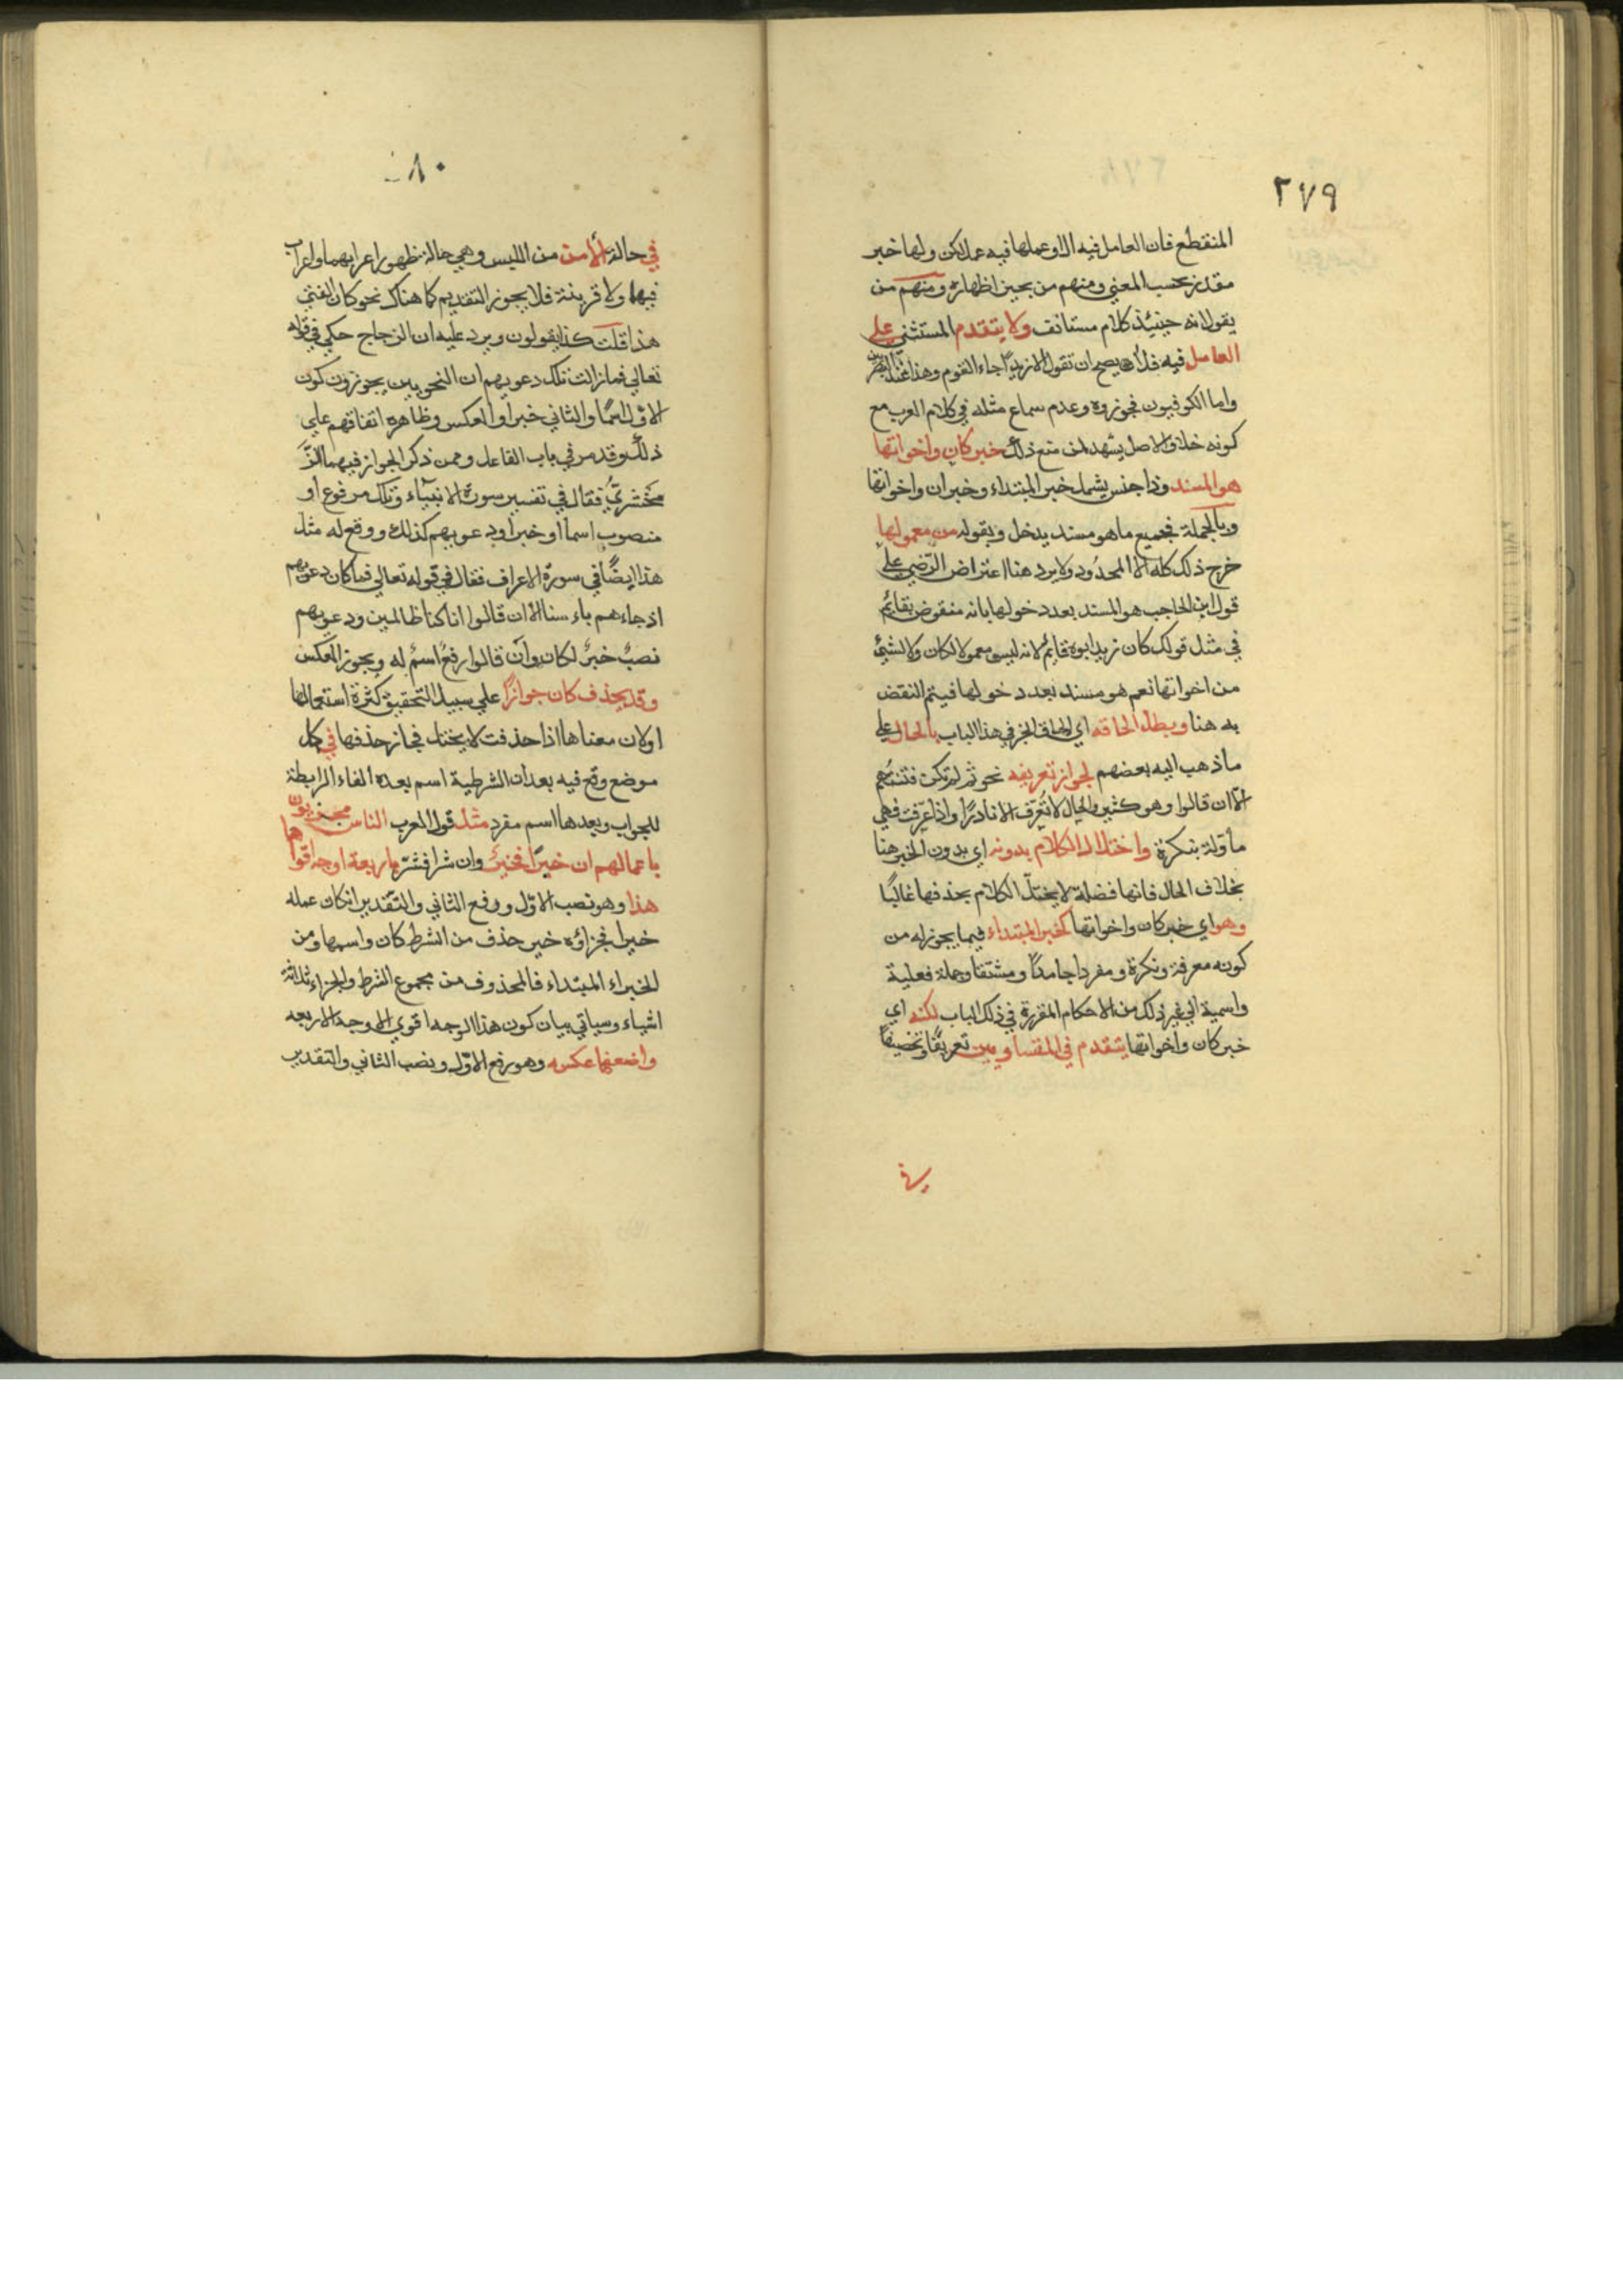 ٢٧٩
المنقطع فان العامل فيه الا وعملها فيه عمل لكن ولها خبر
مقدر بحسب المعني ومنهم من يجيز اظهاره ومنهم من
يقول انه حينئذ كلام مستانف ولا يتقدم المستثني علي
العامل فيه فلا يصح ان تقول الا زيدًا جاء القوم وهذا عند البصريين
واما الكوفيون فجوزوه وعدم سماع مثله في كلام العرب مع
كونه خلاف الاصل يشهد لمن منع ذلك خبر كان واخواتها
هو المسند وذا جنس يشمل خبر المبتداء وخبر ان واخواتها
وبالجملة فجميع ما هو مسند يدخل وبقوله من معمولها
خرج ذلك كله الا المحدود ولا يرد هنا اعتراض الرّضي علي
قول ابن الحاجب هو المسند بعد دخولها بانه منقوض بقايم
في مثل قولك كان زيد ابوه قايم لانه ليس معمولا لكان ولا لشئ
من اخواتها نعم هو مسند بعد دخولها فيتم النقض
به هنا وبطل الحاقه اي الحاق الخبر في هذا الباب بالحال علي
ما ذهب اليه بعضهم لجواز تعريفه نحو ثم لم تكن فتنتهم
الّا ان قالوا وهو كثير والحال لا تُعَرّف الا نادرًا واذا عرّفت فهي
مأولة بنكرة واختلال الكلام بدونه اي بدون الخبر هنا
بخلاف الحال فانها فضلة لا يختلّ الكلام بحذفها غالبًا
وهو اي خبر كان واخواتها كخبر المبتداء فيما يجوز له من
كونه معرفة ونكرة ومفردا جامدًا ومشتقا وجملة فعلية
واسمية الي غير ذلك من الاحكام المقررة في ذلك الباب لكنه اي
خبر كان واخواتها يتقدم في المتساويين تعريفًا وتخصيصًا
في
٨٠
في حالة الأمن من اللبس وهي حالة ظهور اعرابهما او اعراب
فيهما ولا قرينة فلا يجوز التقديم كما هناك نحو كان الفتي
هذا قلت كذا يقولون ويرد عليه ان الزجاج حكي في قوله
تعالي فما زالت تلك دعويهم ان النحويين يجوزون كون
الاوّل اسمًا والثاني خبرا والعكس وظاهره اتفاقهم علي
ذلك وقد مر في باب الفاعل وممن ذكر الجواز فيهما الزّ
مخشريّ فقال في تفسير سورة الانبياء وتلك مرفوع او
منصوب اسما او خبرا ودعويهم كذلك ووقع له مثل
هذا ايضًا في سورة الاعراف فقال في قوله تعالي فما كان دعويهم
اذ جاءهم باءسنا الّا ان قالوا انا كنا ظالمين ودعويهم
نصبٌ خبرٌ لكان وان قالوا رفعٌ اسمٌ له ويجوز العكس
وقد يحذف كان جوازًا علي سبيل التحقيق لكثرة استعمالها
او لان معناها اذا حذفت لا يختل فجاز حذفها في كل
موضع وقع فيه بعد ان الشرطية اسم بعده الفاء الرابطة
للجواب وبعدها اسم مفرد مثل قول العرب الناس مجزيون
باعمالهم ان خيرًا فخيرٌ وان شرا فشرّ باربعة اوجه اقواها
هذا وهو نصب الاوّل ورفع الثاني والتقدير ان كان عمله
خيرا فجزاؤه خير حذف من الشرط كان واسمها ومن
الخبراء المبتداء فالمحذوف من مجموع الشرط والجزاء ثلاثة
اشياء وسياتي بيان كون هذا الوجه اقوي الاوجه الاربعه
واضعفها عكسه وهو رفع الاوّل ونصب الثاني والتقدير